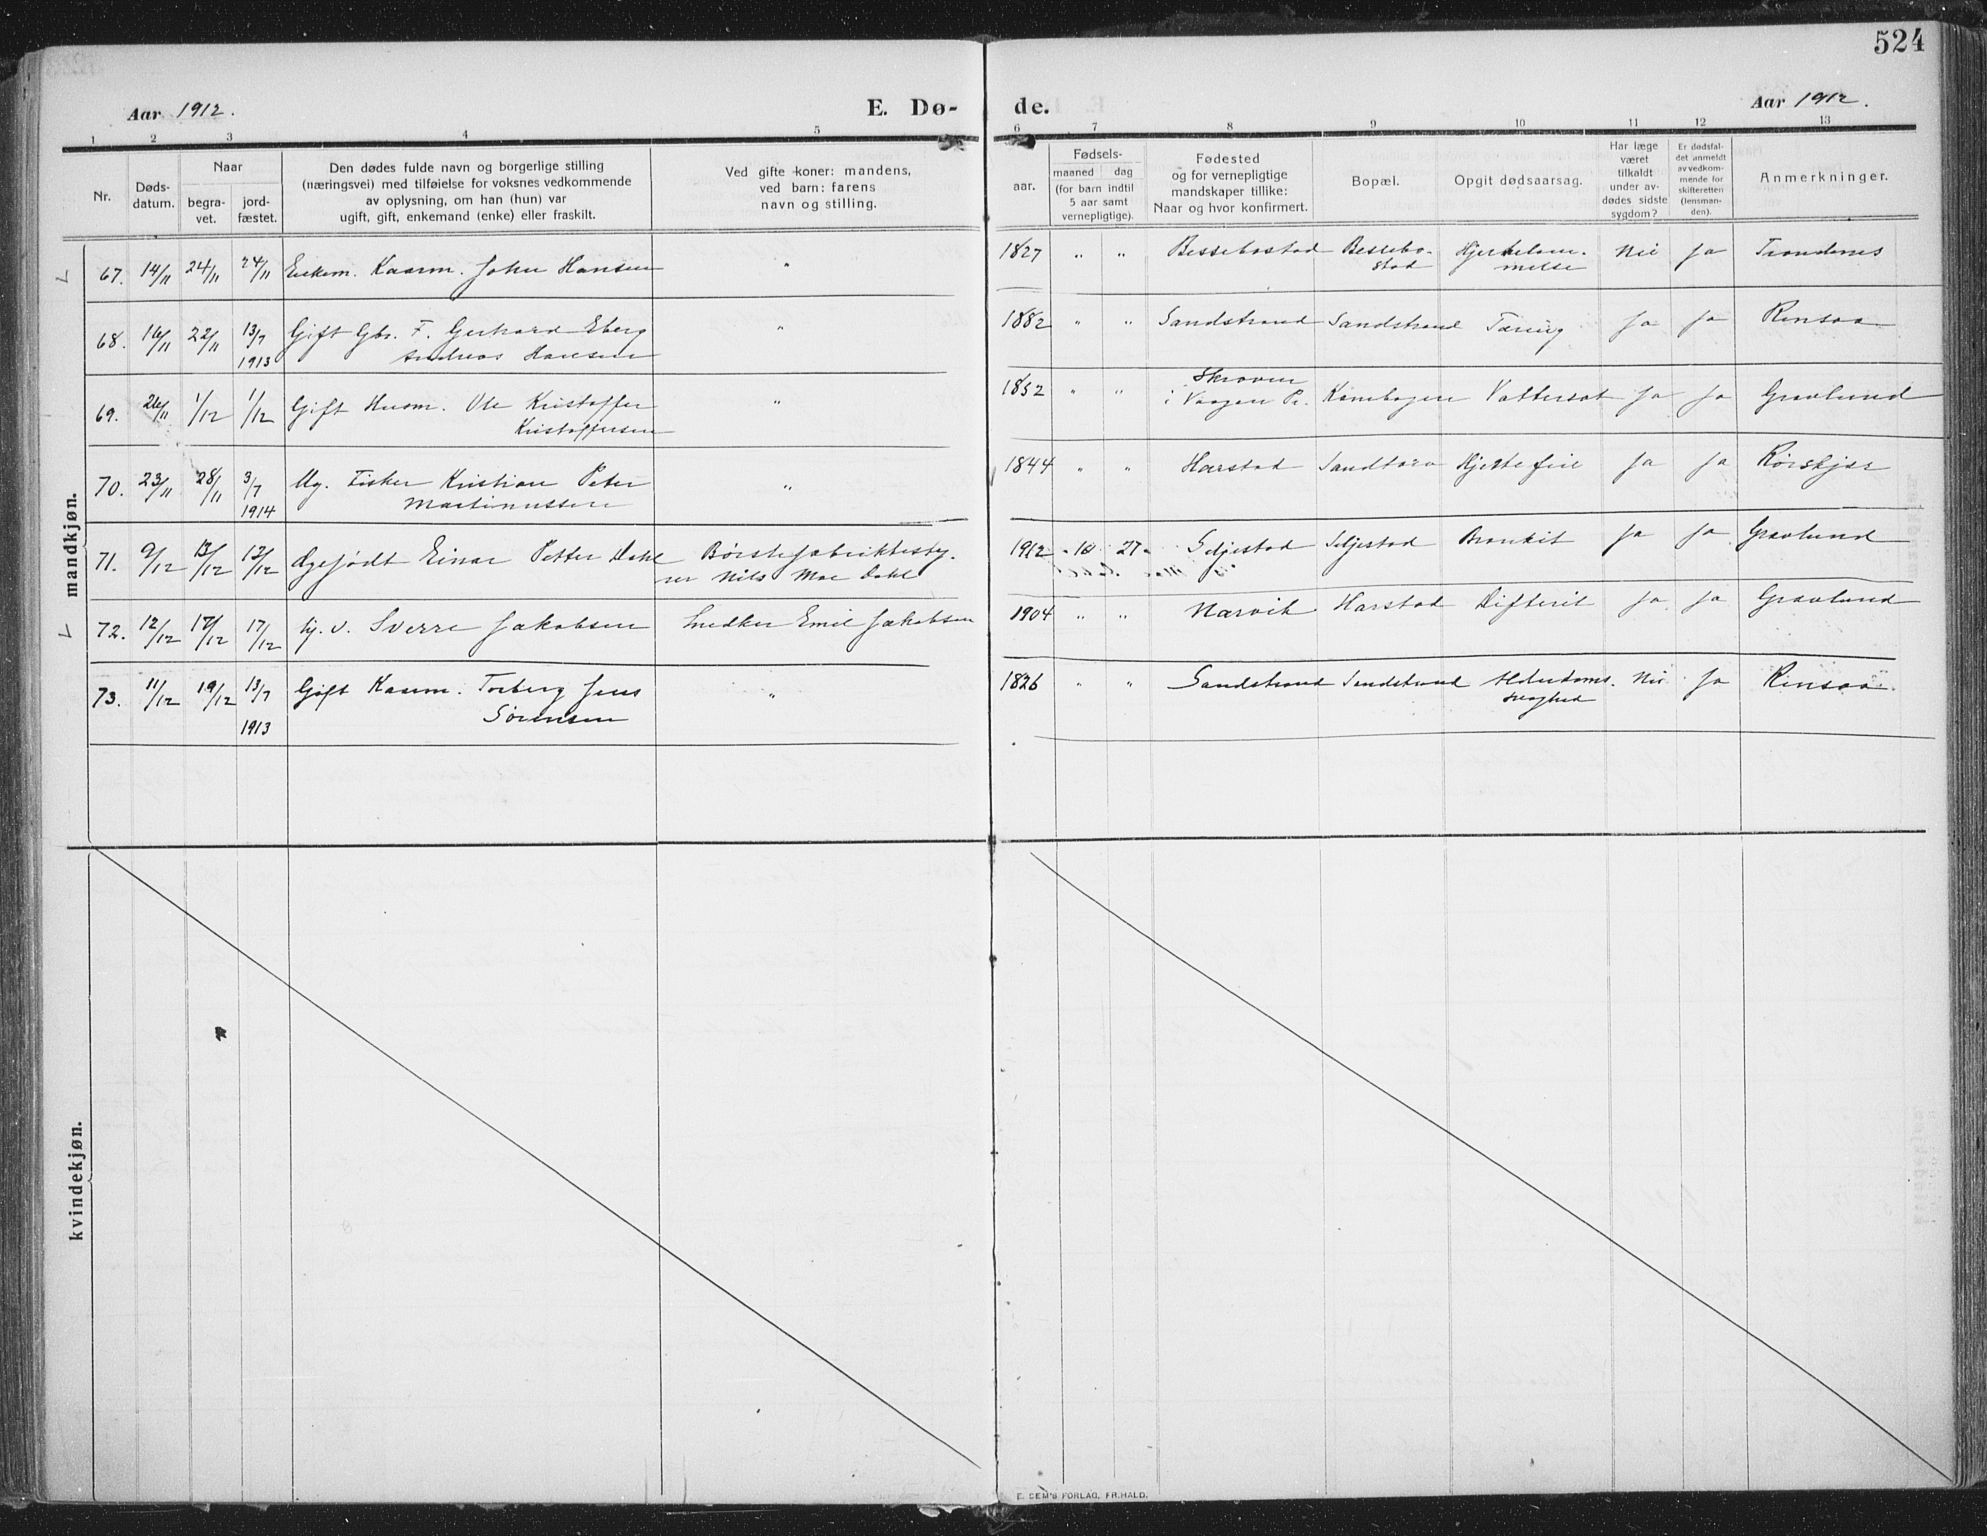 524
Aar 1912.
E. Dø-
de.
Aar 1912.
1 2 3 4 5 6 7 8 9 10 11 12 13
Nr.
Døds-
datum.
Naar
begra-
vet.
jord-
fæstet.
Den dødes fulde navn og borgerlige stilling
(næringsvei) med tilføielse for voksnes vedkommende
av oplysning, om han (hun) var
ugift, gift, enkemand (enke) eller fraskilt.
Ved gifte koner: mandens,
ved barn: farens
navn og stilling.
aar.
Fødsels-
maaned dag
(for barn indtil
5 aar samt
vernepligtige).
Fødested
og for vernepligtige
mandskaper tillike:
Naar og hvor konfirmert.
Bopæl.
Opgit dødsaarsag.
Har læge
været
tilkaldt
under av-
dødes sidste
sygdom?
Er dødsfal-
det anmeldt
av vedkom-
mende for
skifteretten
(lensman-
den).
Anmerkninger.
mandkjøn.
67. 14/11 24/11 24/11 Enkem. Kaarm. John Hansen " 1827 " " Bessebostad Bessebo- Hjertelam- Nei Ja Trondenes
stad melse
68. 16/11 22/11 13/7 Gift Gbr. F. Gerhard Eberg " 1882 " " Sandstrand Sandstrand Tæring Ja Ja Rensaa
1913 Andreas Hansen
69. 26/11 1/12 1/12 Gift Husm. Ole Kristoffer " 1852 " " Skroven
i Vaagan Pr. Kanebogen Vattersot Ja Ja Gravlund
Kristoffersen
70. 23/11 28/11 3/7 Ug. Fisker Kristian Peter " 1844 " " Harstad Sandtorv Hjertefeil Ja Ja Rørskjær
1914 Martinussen
71. 9/12 13/12 13/12 Ægefødt Einar Petter Dahl Børstefabrikbesty- 1912 - 10 27 - Seljestad Seljestad Bronkit Ja Ja Gravlund
rer Nils Moe Dahl
72. 12/12 17/12 17/12 Sverre Jakobsen Snedker Emil Jakobsen 1904 " " Narvik Harstad Difterit Ja Ja Gravlund
73. 11/12 19/12 13/7 Gift Kaarm. Torberg Jens " 1826 " " Sandstrand Sandstrand Alderdoms- Nei Ja Rensaa
1913 Sørensen svaghed
kvindekjøn.
E. SEM'S FORLAG, FR.HALD.